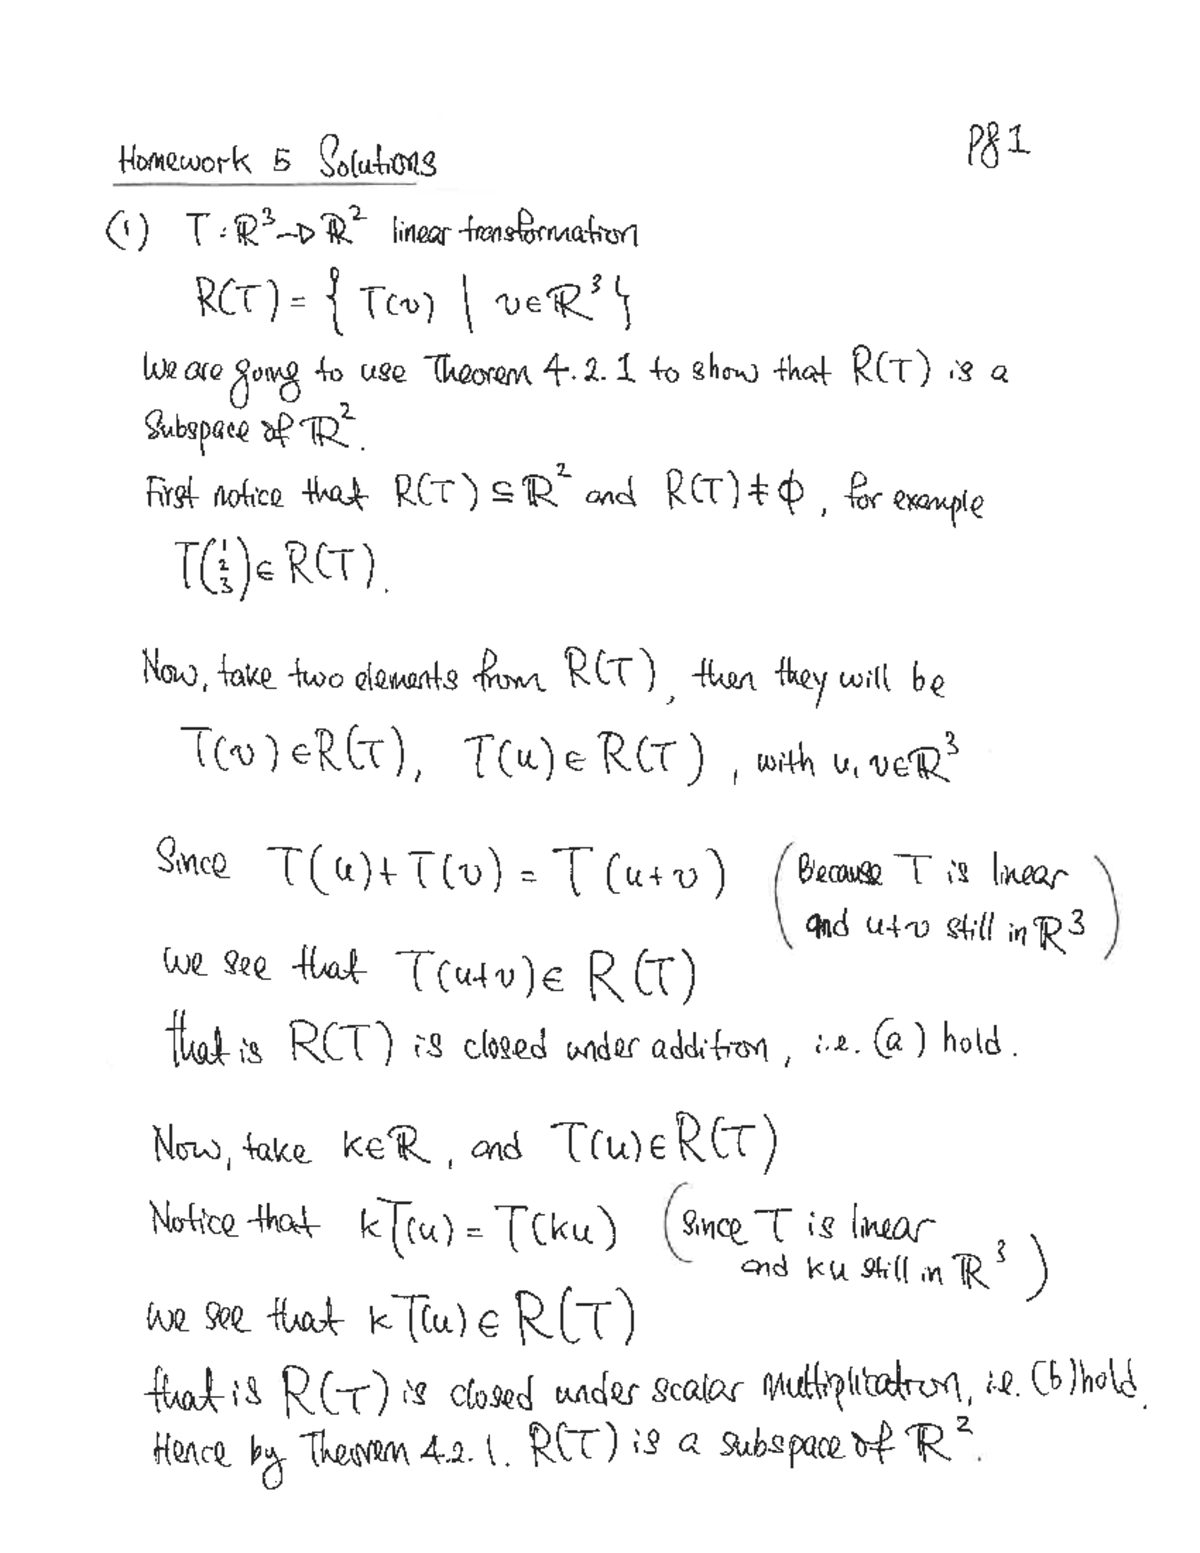 Pg 1
Homework 5 Solutions
(1) T : ℝ³→ℝ² linear transformation
R(T) = { T(v) | v∈ℝ³ }
We are going to use Theorem 4.2.1 to show that R(T) is a
Subspace of ℝ².
First notice that R(T) ⊆ ℝ² and R(T) ≠ ϕ, for example
T(1 2 3) ∈ R(T).
Now, take two elements from R(T), then they will be
T(v) ∈ R(T), T(u) ∈ R(T), with u, v∈ℝ³
Since T(u) + T(v) = T(u+v) (Because T is linear
and u+v still in ℝ³)
we see that T(u+v) ∈ R(T)
that is R(T) is closed under addition, i.e. (a) hold.
Now, take k∈ℝ, and T(u) ∈ R(T)
Notice that kT(u) = T(ku) (Since T is linear
and ku still in ℝ³)
we see that kT(u) ∈ R(T)
that is R(T) is closed under scalar multiplication, i.e. (b) hold.
Hence by Theorem 4.2.1. R(T) is a subspace of ℝ².